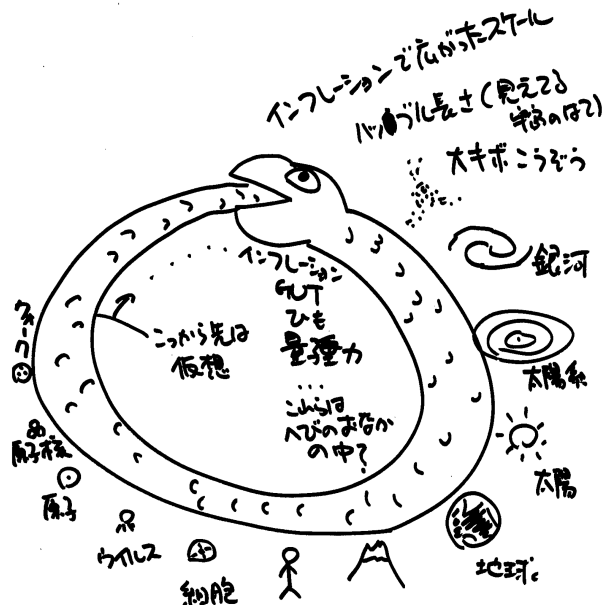 インフレーションで広がったスケール
ハッブル長さ(見えてる
宇宙のはて)
大キボこうぞう
銀河
太陽系
太陽
地球
細胞
ウイルス
原子
原子核
クォーク
インフレーション
GUT
ひも
量子重力
...
これらは
へびのおなか
の中?
こっから先は
仮想